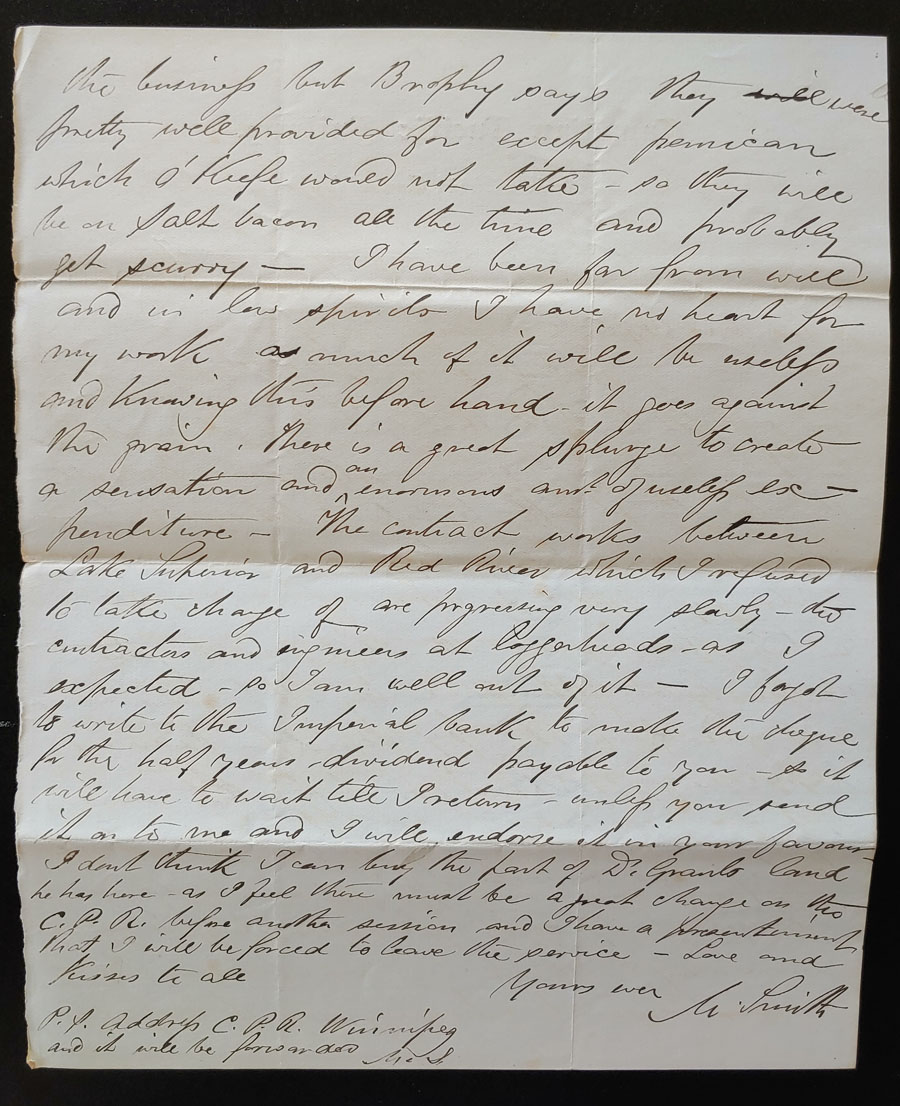 the business but Brophy says they will were
pretty well provided for except pemican
which O'Keefe would not take - so they will
be on Salt bacon all the time and probably
get scurvy — I have been far from well
and in low spirits I have no heart for
my work as much of it will be useless
and Knowing this before hand - it goes against
the grain. There is a great splurge to create
a sensation and an enormous amt. of useless ex-
penditure - The contract works between
Lake Superior and Red River which I refused
to take charge of are progressing very slowly - the
contractors and engineers at loggerheads - as I
expected - so I am well out of it — I forgot
to write to the Imperial bank to make the cheque
for the half years dividend payable to you - so it
will have to wait till I return - unless you send
it on to me and I will endorse it in your favour
I dont think I can buy the part of Dr. Grants land
he has here - as I feel there must be a great change on the
C.P.R. before another session and I have a presentiment
that I will be forced to leave the service - Love and
Kisses to all
Yours ever
M. Smith
P.S. Address C.P.R. Winnipeg
and it will be forwarded M.S.